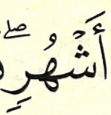 أَشْهُرٍ ۖ